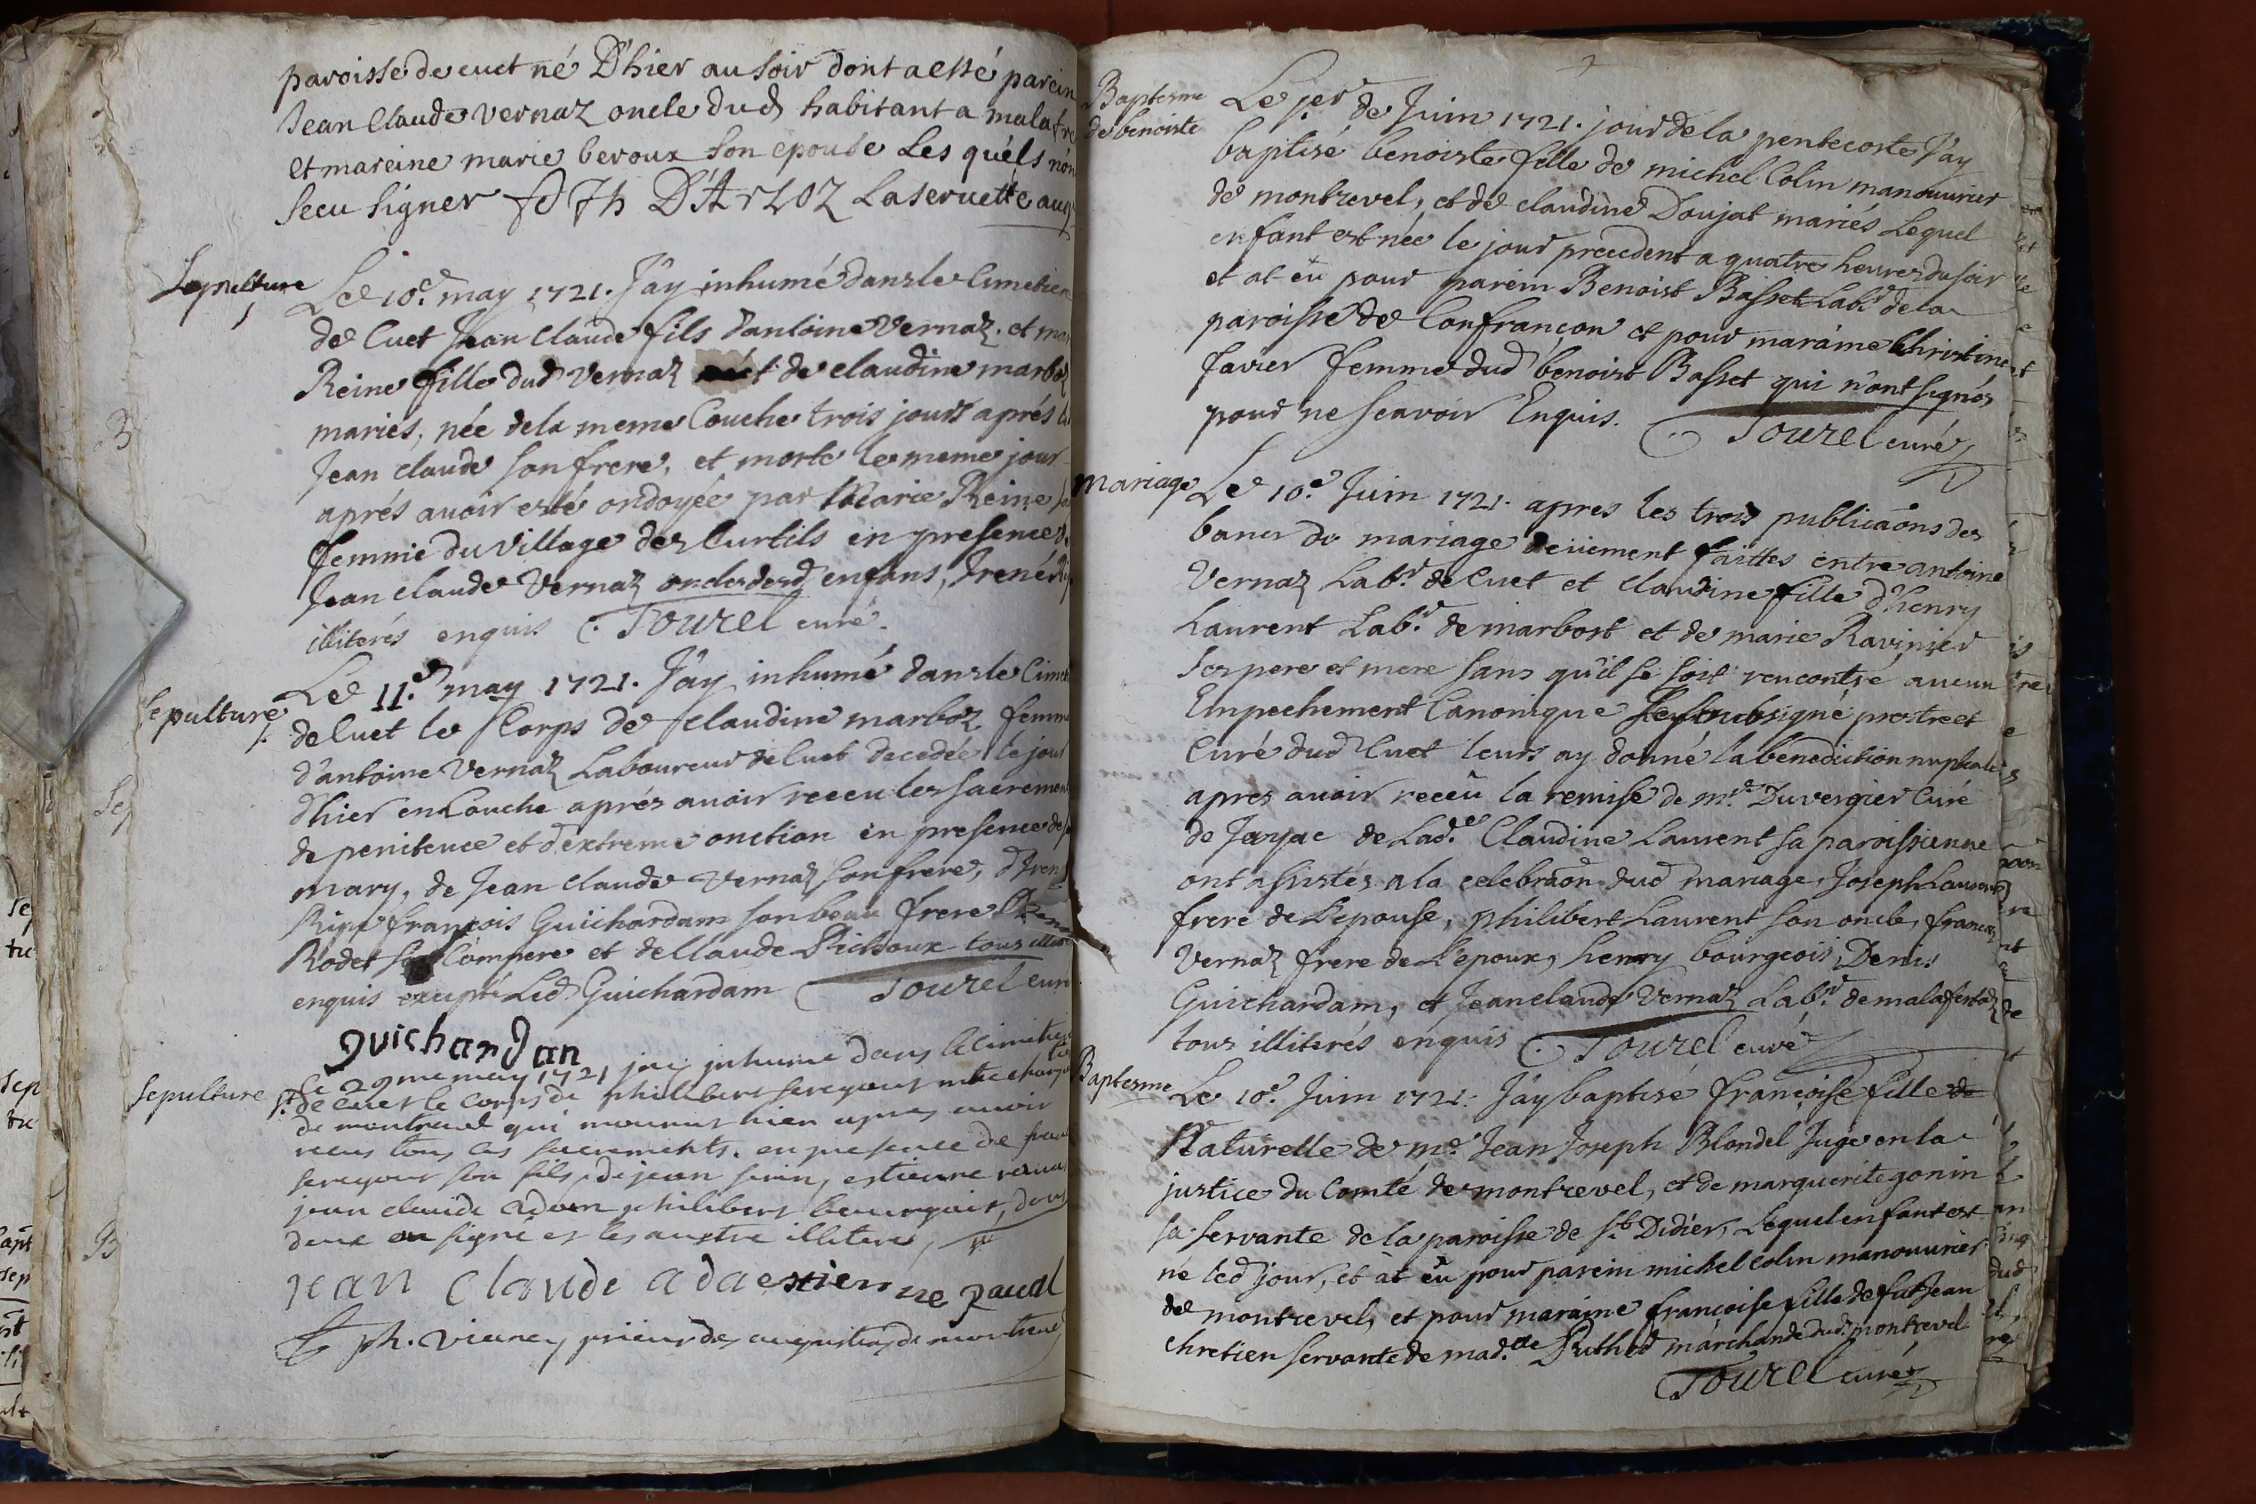 paroisse de cuet né D'hier au soir dont a esté parein
Jean Claude vernaz oncle dud habitant a malafre
et mareine marie beroux son epouse Les quéls nón
sceu signer
Laseruette

Sepulture
Le 10.e may 1721. J'ây inhumé dans le Cimetiere
de Cuet Jean Claude fils d'antoine Vernaz. et mar
Reine fille dud Vernaz et de claudine marboz
mariés, née de la meme Couche trois jours aprés le
Jean claude son frere, et morte le meme jour
aprés avoir esté ondoyée par Marie Reine sa
femme du village des Curtils en presence d
Jean claude Vernaz oncles desd enfans, Irené Rip
illiterés enquis Tourel curé.

Sepulture
Le 11.e may 1721. J'ây inhumé dans le Cimet
de Cuet le Corps de Claudine marboz femme
d'antoine Vernaz Laboureur de Cuet decedée le jour
d'hier en Couche aprés avoir receu les sacremen
de penitence et d'extreme onction en presence de s
mary, de Jean claude Vernaz son frere, d'Iren
Ripe françois Guichardam son beau frere
Rodet Compere et de Claude Pichoux tous illite
enquis excepté Led Guichardam Tourel curé
guichardan

Sepulture
Le 29me may 1721 jay inhume dans le cimetiere
de cuet le corps de philibert sereyoux
de montrevel qui mourut hier apres avoir
receu tous les sacrements. en presence de fran
sereyoux son fils, de jean perin, estienne raual
jean claude adam philibert beurgois, dont
deux on signé et les austre illiteré,
jean claude ada estienne raual
fr ph. vieurey prieur des augustins de montrevel

Baptesme
de benoiste
Le jer de Juin 1721. jour de la pentecoste J'ay
baptisé benoiste fille de michel Colin manouurier
de montrevel, et de claudine Doujat mariés Lequel
enfant est née le jour precedent a quatre heures du soir
et at eû pour parein Benoist Basset Labr de la
paroisse de Confrançon et pour maraine Christine
favier femme dud benoist Basset qui n'ont signés
pour ne scavoir Enquis. Tourel curé

mariage
Le 10.e Juin 1721. apres les trois publicaôns des
bancs de mariage deüement faittes entre antoine
Vernaz Labr. de Cuet et Claudine fille d'henry
Laurent Labr. de marbost et de marie Ravinier
ses pere et mere sans qu'il se soit rencontré aucun
Empechement Canonique Je soubsigné prestre et
Curé dud Cuet leurs ay donné la benediction nuptiale
apres auoir receü la remise de mre Duvergier Curé
de Jayac de Lade. Claudine Laurent sa paroissienne
ont assistés a la celebraôn dud mariage, Joseph Laurent
frere de L'epouse, philibert Laurent son oncle, francois
Vernaz frere de L'epoux, henry bourgeois, Denis
Guichardam, et Jean claude Vernaz Labr. de malafretaz
tous illiterés enquis Tourel curé

Baptesme
Le 10.e Juin 1721. J'ây baptisé françoise fille de
Naturelle de me. Jean Joseph Blondel Juge en la
justice du Comté de montrevel, et de marguerite gonin
sa servante de la paroisse de St Didier, Lequel enfant est
né led jour, et at eû pour parein michel colin manouurier
de montrevel, et pour maraine françoise fille de fut Jean
chretien servante de made. Puthod marchande dud. montrevel
Tourel curé